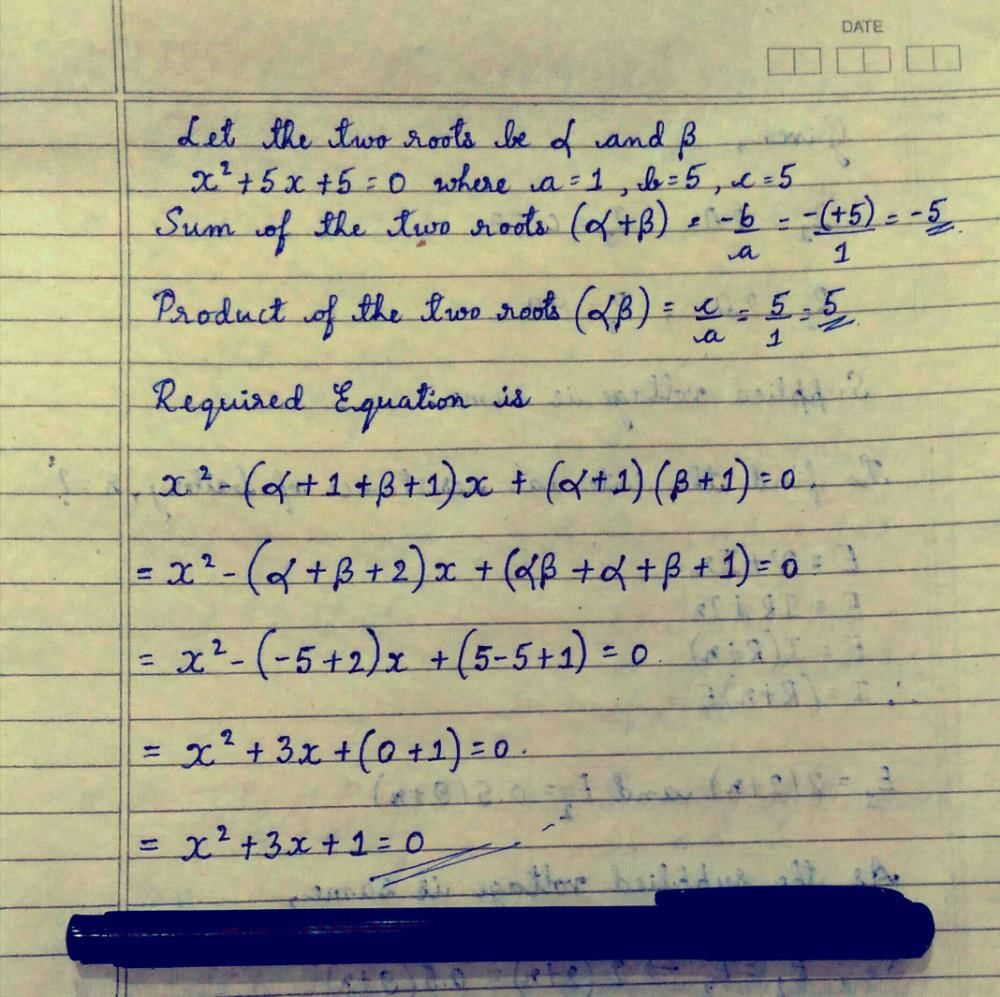 DATE
Let the two roots be α and β
x² + 5x + 5 = 0 where a = 1, b = 5, c = 5
Sum of the two roots (α + β) = -b/a = -(+5)/1 = -5
Product of the two roots (αβ) = c/a = 5/1 = 5
Required Equation is
x² - (α + 1 + β + 1)x + (α + 1)(β + 1) = 0.
= x² - (α + β + 2)x + (αβ + α + β + 1) = 0
= x² - (-5 + 2)x + (5 - 5 + 1) = 0.
= x² + 3x + (0 + 1) = 0.
= x² + 3x + 1 = 0